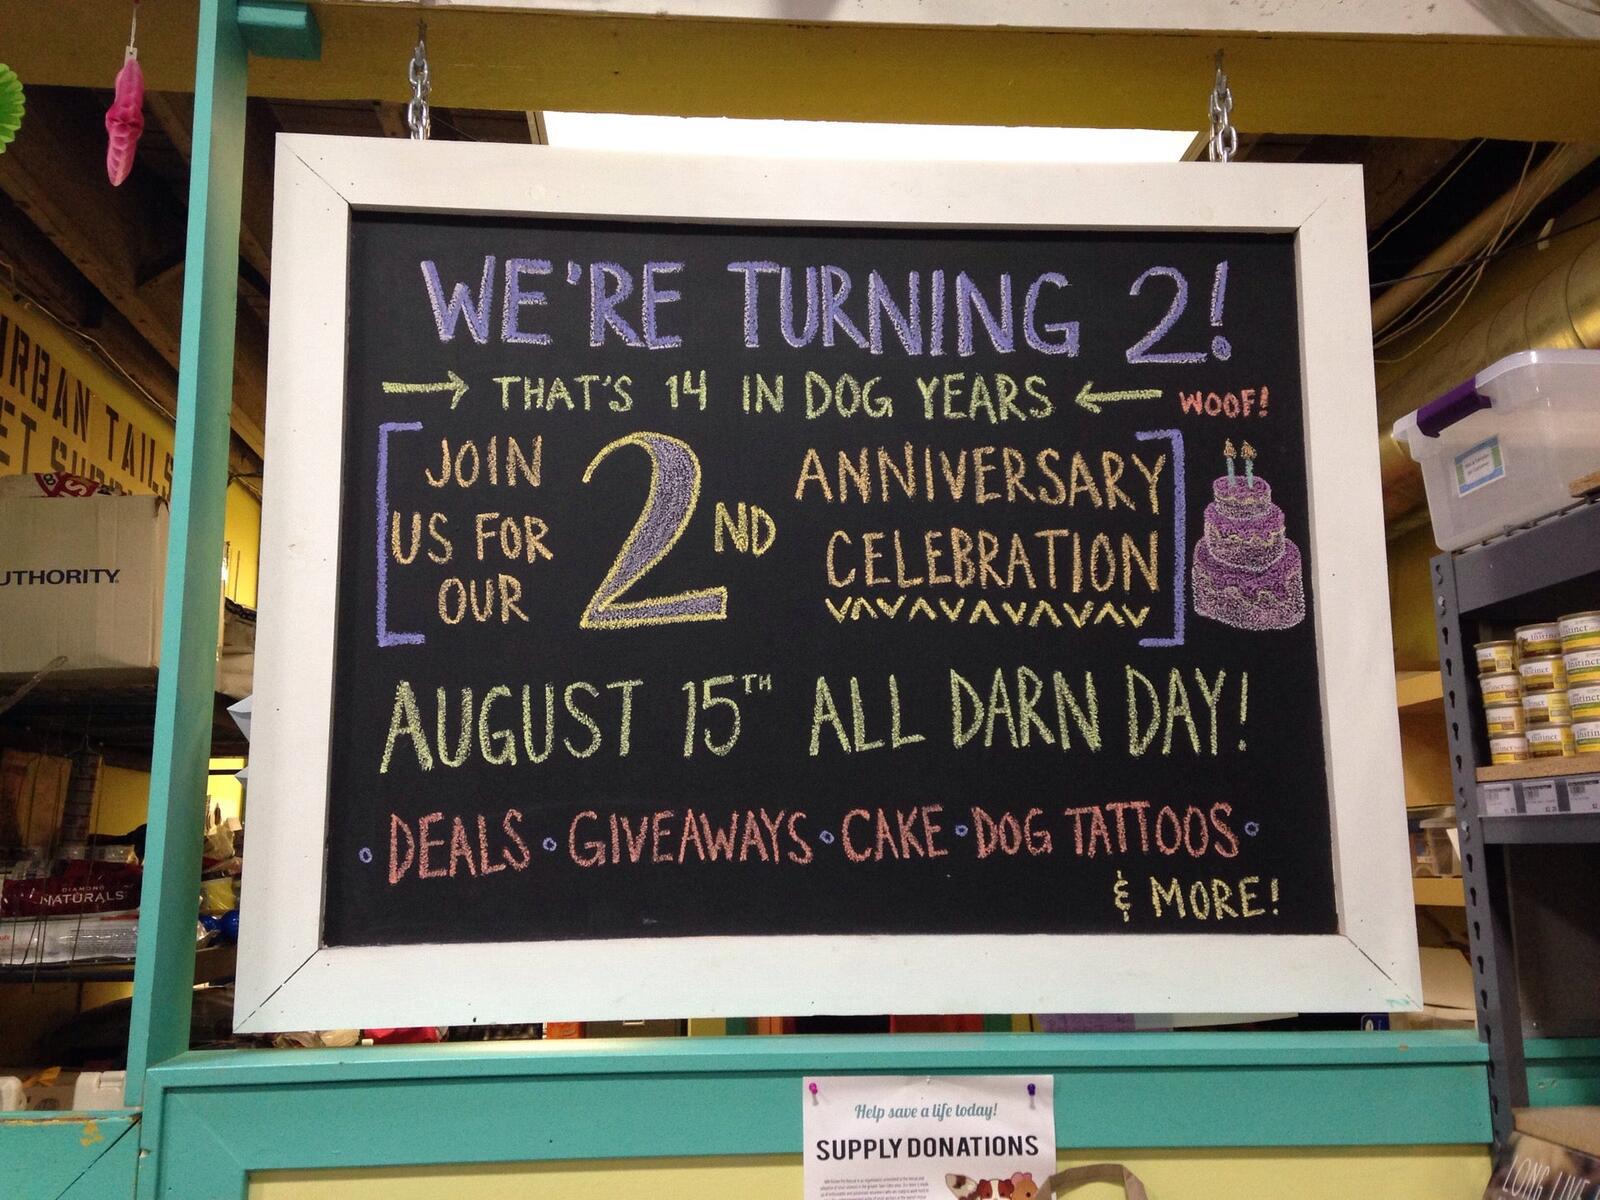 WE'RE TURNING 2!
→ THAT'S 14 IN DOG YEARS ← WOOF!
JOIN US FOR OUR
2ND
ANNIVERSARY
CELEBRATION
AUGUST 15TH ALL DARN DAY!
DEALS • GIVEAWAYS • CAKE • DOG TATTOOS •
& MORE!
URBAN TAILS
PET
UTHORITY
DIAMOND
NATURALS
Instinct
Instinct
Instinct
Instinct
Help save a life today!
SUPPLY DONATIONS
LONG LIVE